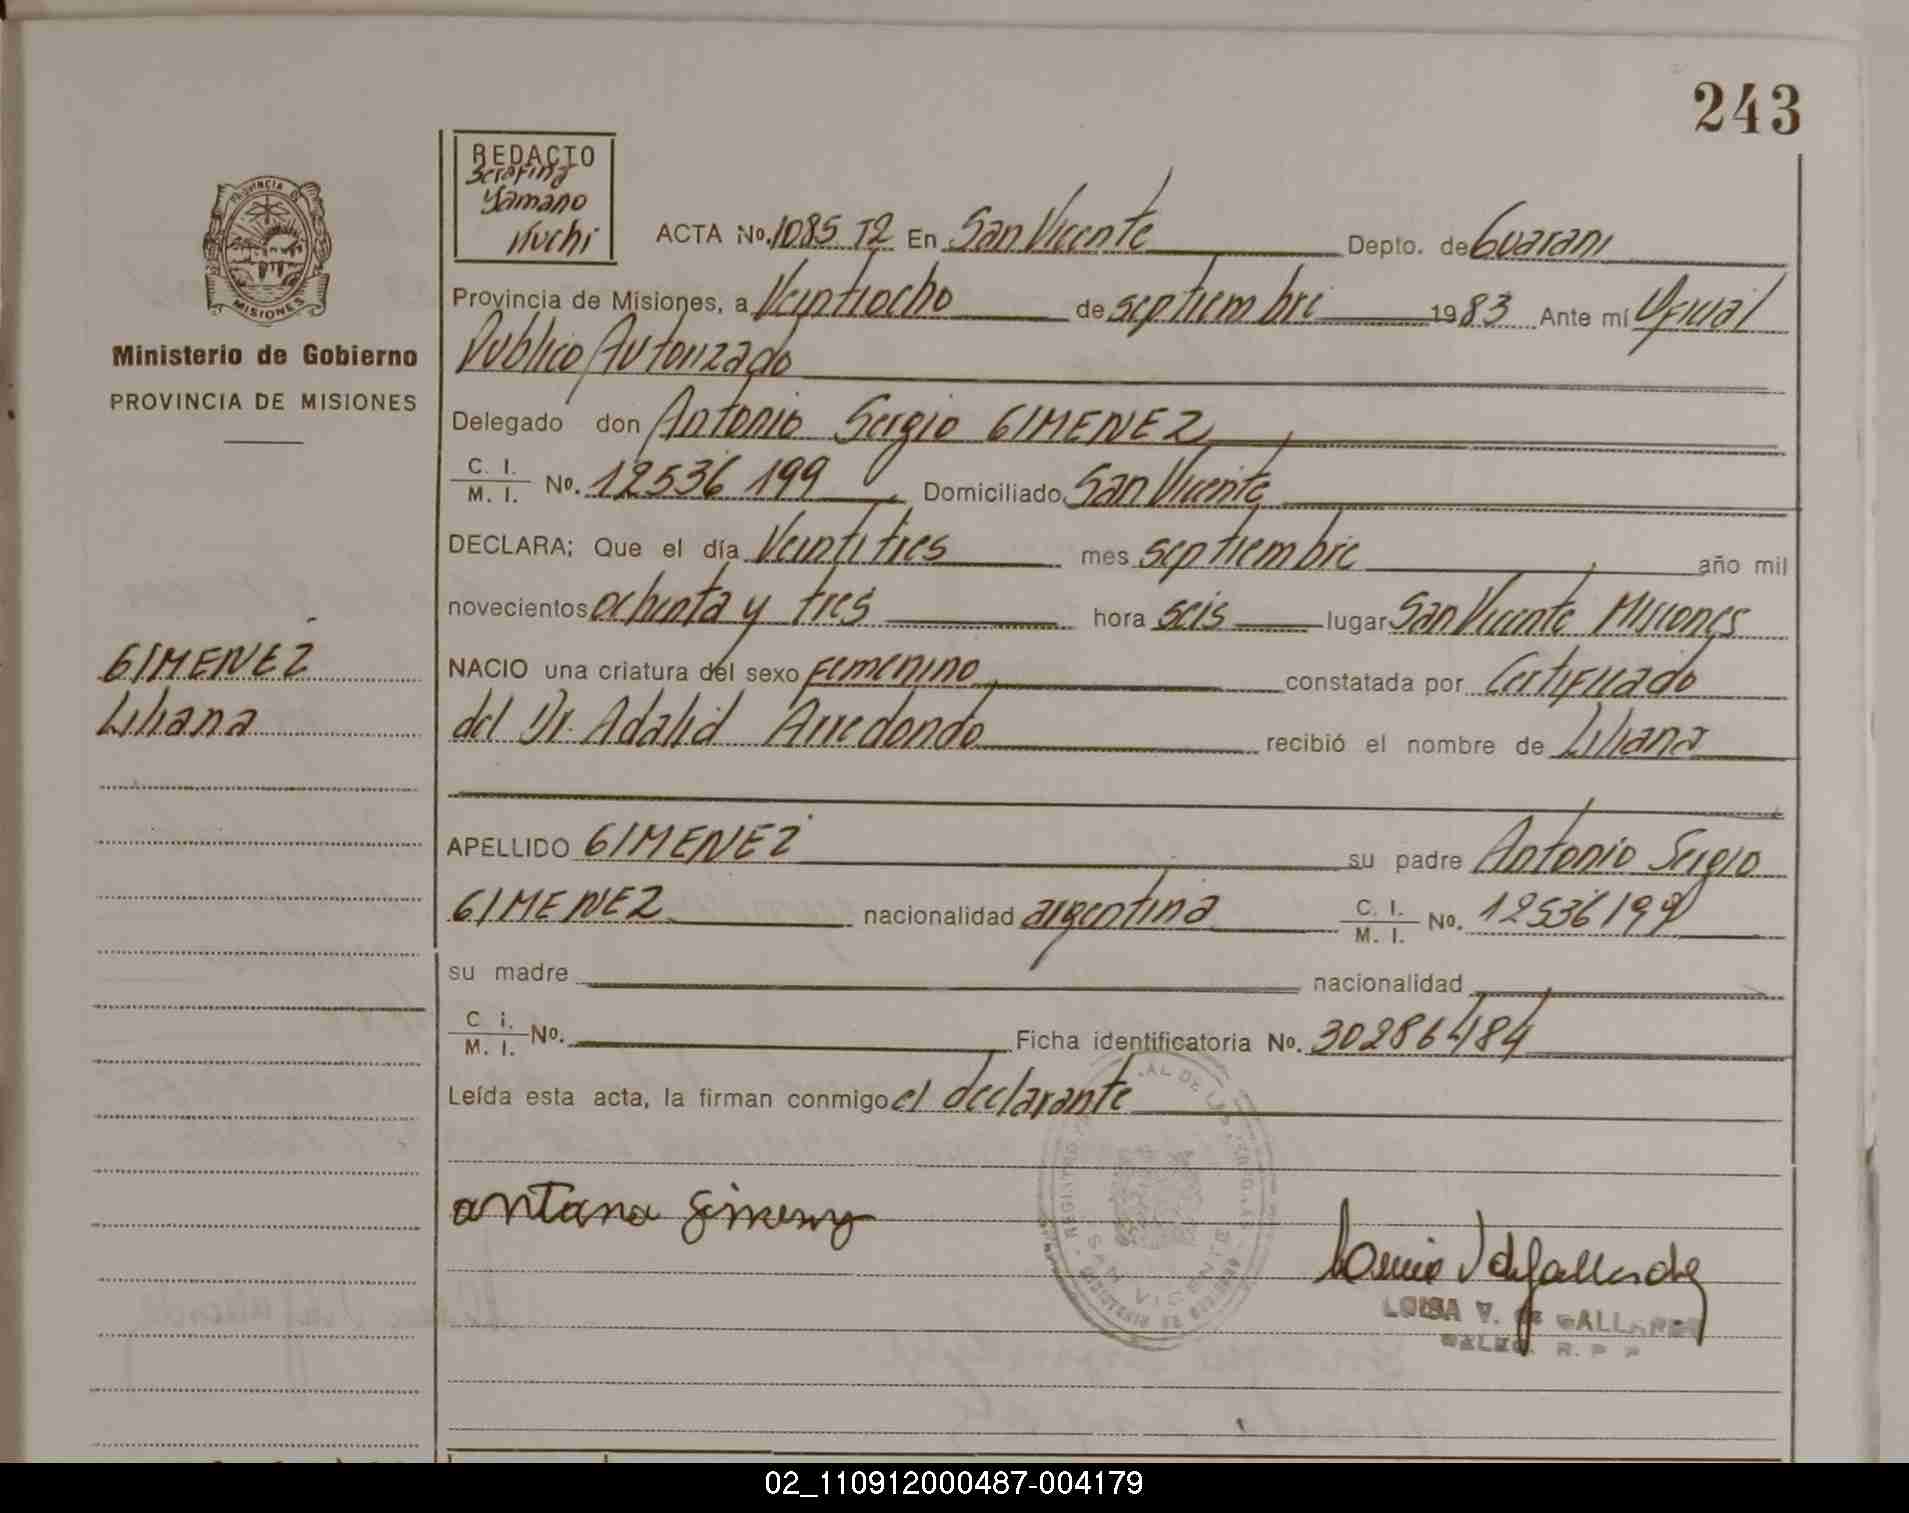 243
REDACTO
Serafina
Yamano
Kuchi
PROVINCIA DE
MISIONES
Ministerio de Gobierno
PROVINCIA DE MISIONES
ACTA No. 1085 T2 En San Vicente Depto. de Guarani
Provincia de Misiones, a Veintiocho de septiembre 1983 Ante mí Oficial
Publico Autorizado
Delegado don Antonio Sergio GIMENEZ
C. I.
M. I. No. 12536 199 Domiciliado San Vicente
DECLARA; Que el día Veintitres mes septiembre año mil
novecientos ochenta y tres hora seis lugar San Vicente Misiones
GIMENEZ
Liliana
NACIO una criatura del sexo femenino constatada por Certificado
del Dr. Adalid Arredondo recibió el nombre de Liliana
APELLIDO GIMENEZ su padre Antonio Sergio
GIMENEZ nacionalidad argentina C. I.
M. I. No. 12536199
su madre nacionalidad
C i.
M. I. No. Ficha identificatoria No. 30286484
Leída esta acta, la firman conmigo el declarante
SAN VICENTE
LUISA V. DE GALLARDO
R. P. P
02_110912000487-004179